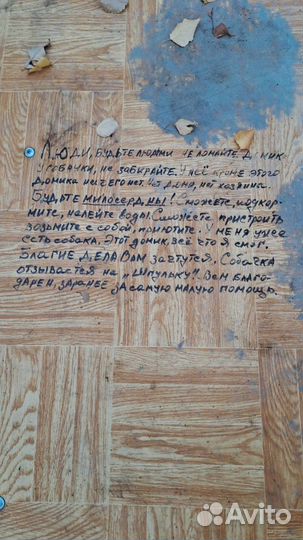 Люди, будьте людьми не ломайте. Домик
у собачки, не забирайте. У неё кроме этого
домика ничего нет. Нет дома, нет хозяина.
Будьте милосердны! Сможете, подкор-
мите, налейте воды. Сможете пристроить
возьмите с собой, приютите. У меня уже
есть собака. Этот домик, всё что я смог.
Благие дела Вам зачтутся. Собачка
отзывается на "Шпульку". Вам благо-
дарен, заранее за самую малую помощь.
Avito